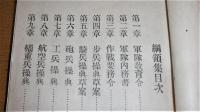 綱領集目次
第一章 軍隊教育令
第二章 軍隊内務書
第三章 作戰要務令
第四章 步兵操典草案
第五章 騎兵操典草案
第六章 砲兵操典
第七章 工兵操典
第八章 航空兵操典
第九章 輜重兵操典